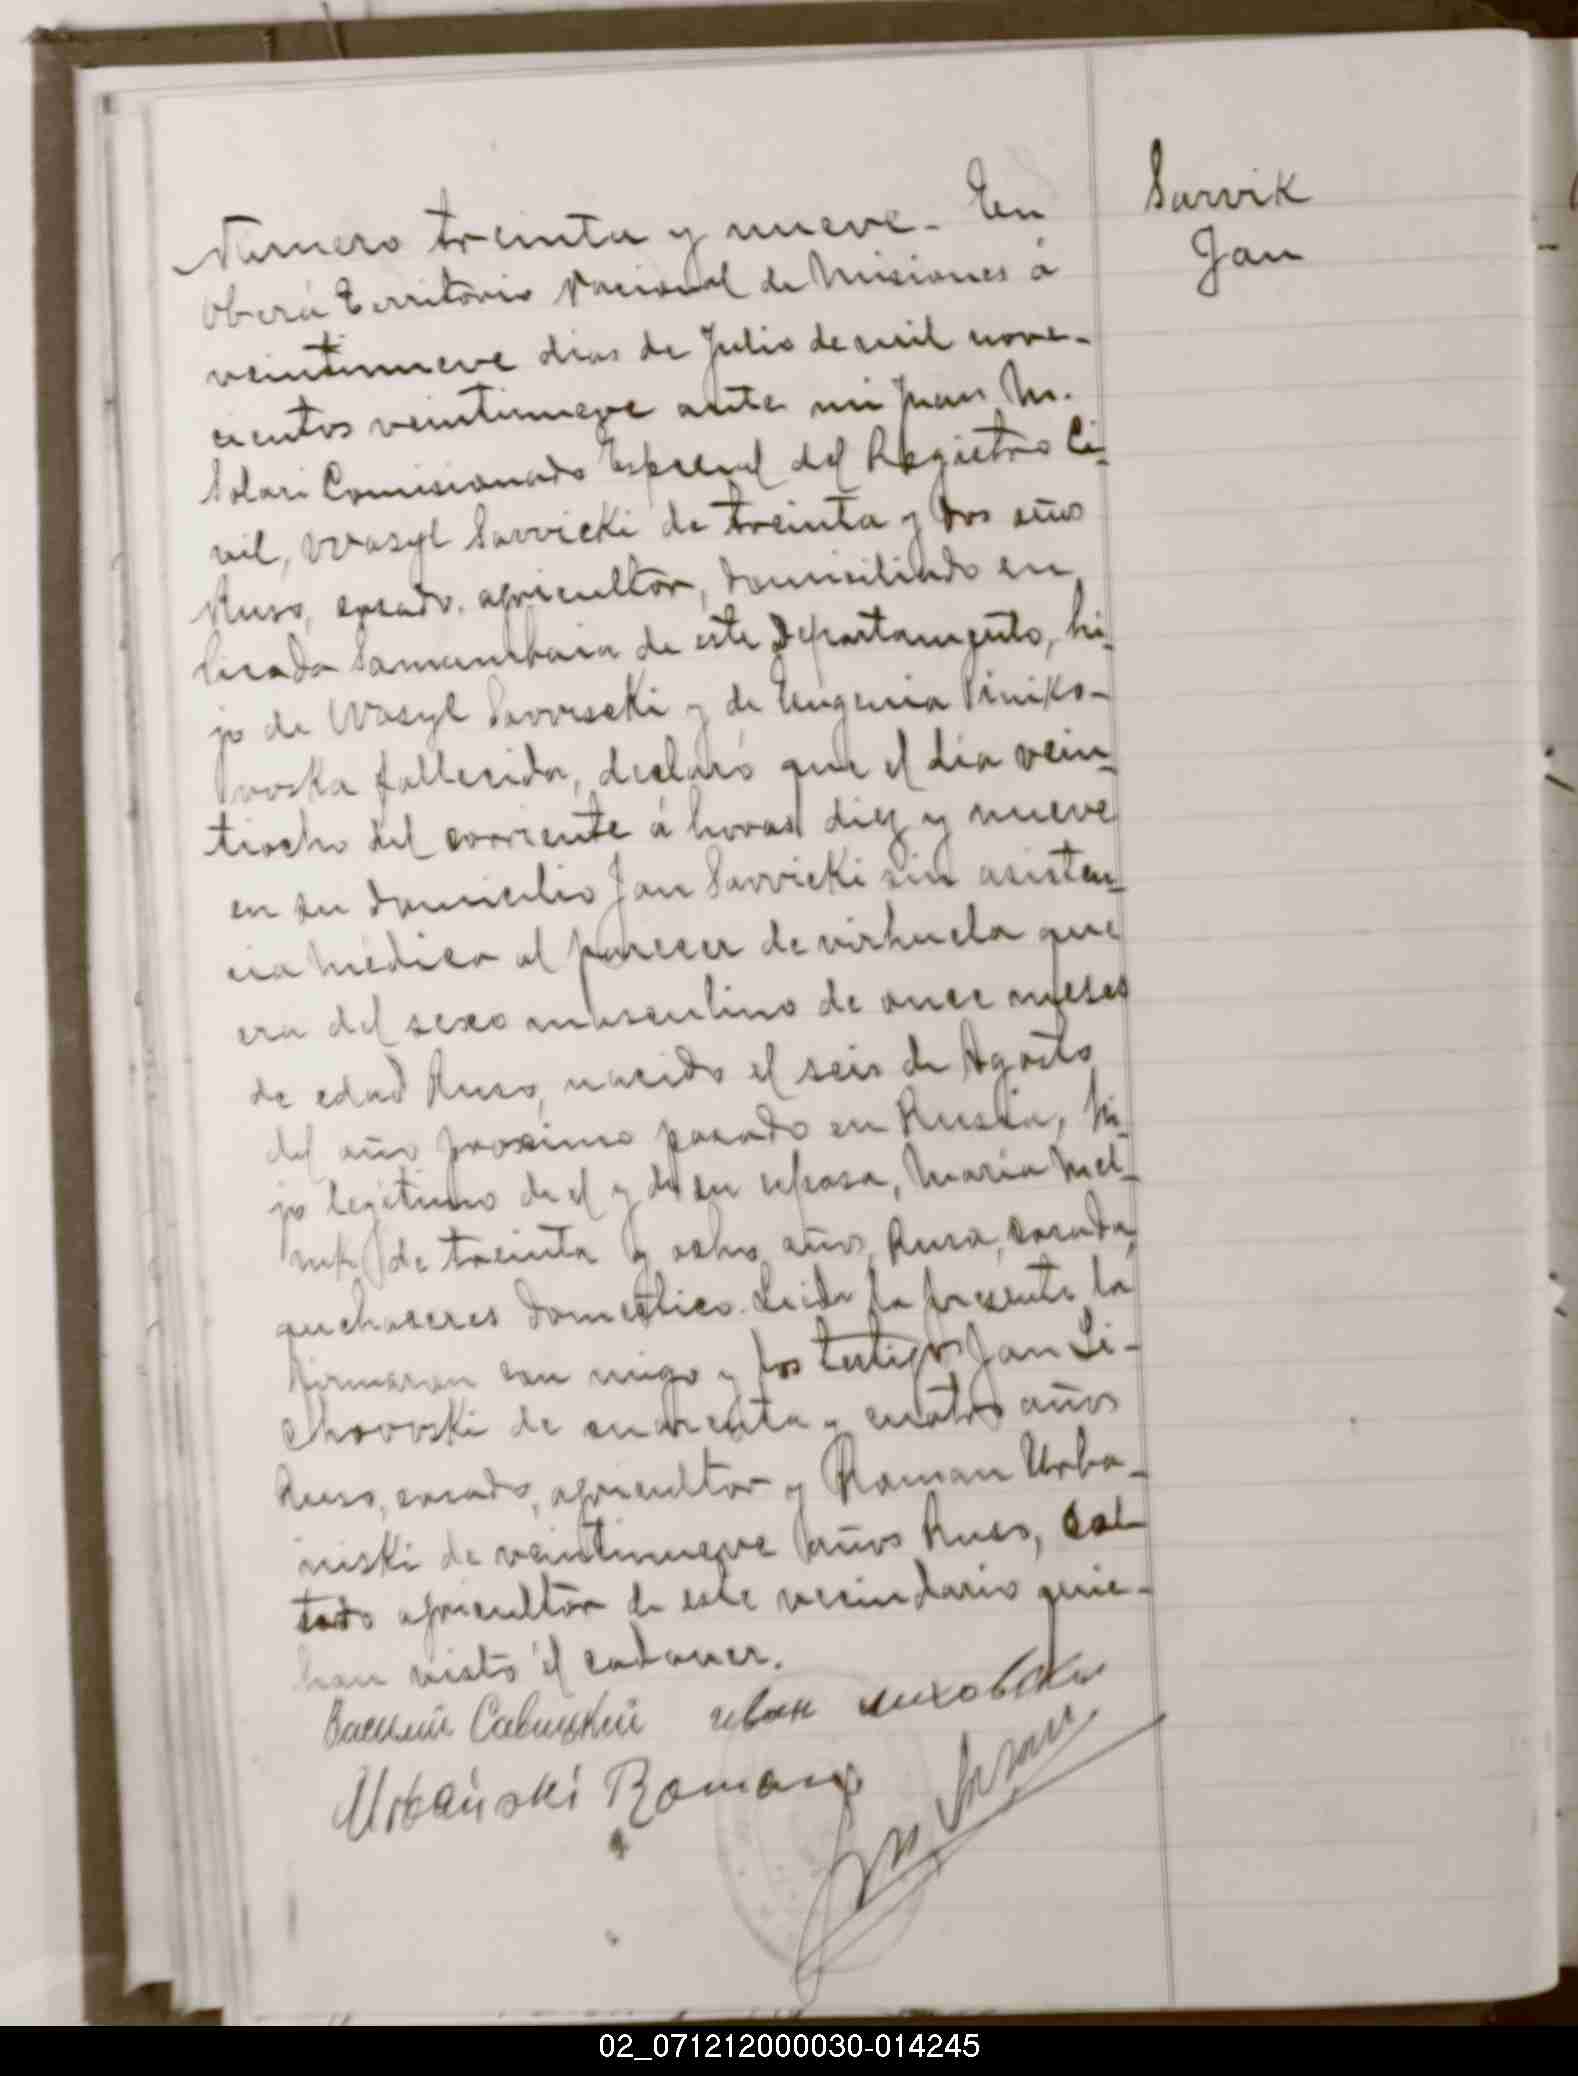 Sarvik
Jan
Numero treinta y nueve - En
Oberá Territorio Nacional de Misiones á
veintinueve dias de Julio de mil nove-
cientos veintinueve ante mi Juan M.
Solari Comisionado Especial del Registro Ci-
vil, Wasyl Savvicki de treinta y dos años
Ruso, casado, agricultor, domiciliado en
Picada Samambaia de este Departamento, hi-
jo de Wasyl Savviscki y de Eugenia Piniko-
voska fallecida, declaró que el dia vein-
tiocho del corriente á horas diez y nueve
en su domicilio Jan Savvicki sin asisten-
cia médica al parecer de virhuela que
era del sexo masculino de once meses
de edad Ruso, nacido el seis de Agosto
del año proximo pasado en Rusia, hi-
jo legitimo de el y de su esposa, Maria Mel-
de treinta y ocho años, Rusa, casada,
quehaceres domestico. Leida la presente la
firmaron con migo y los testigos Jan Li-
chovvski de cuarenta y cuatro años
Ruso, casado, agricultor y Roman Urba-
niski de veintinueve años Ruso, sol-
tero agricultor de este vecindario quie-
han visto el cadaver.
Василий Савицкий иван лиховски
Urbański Roman
02_071212000030-014245